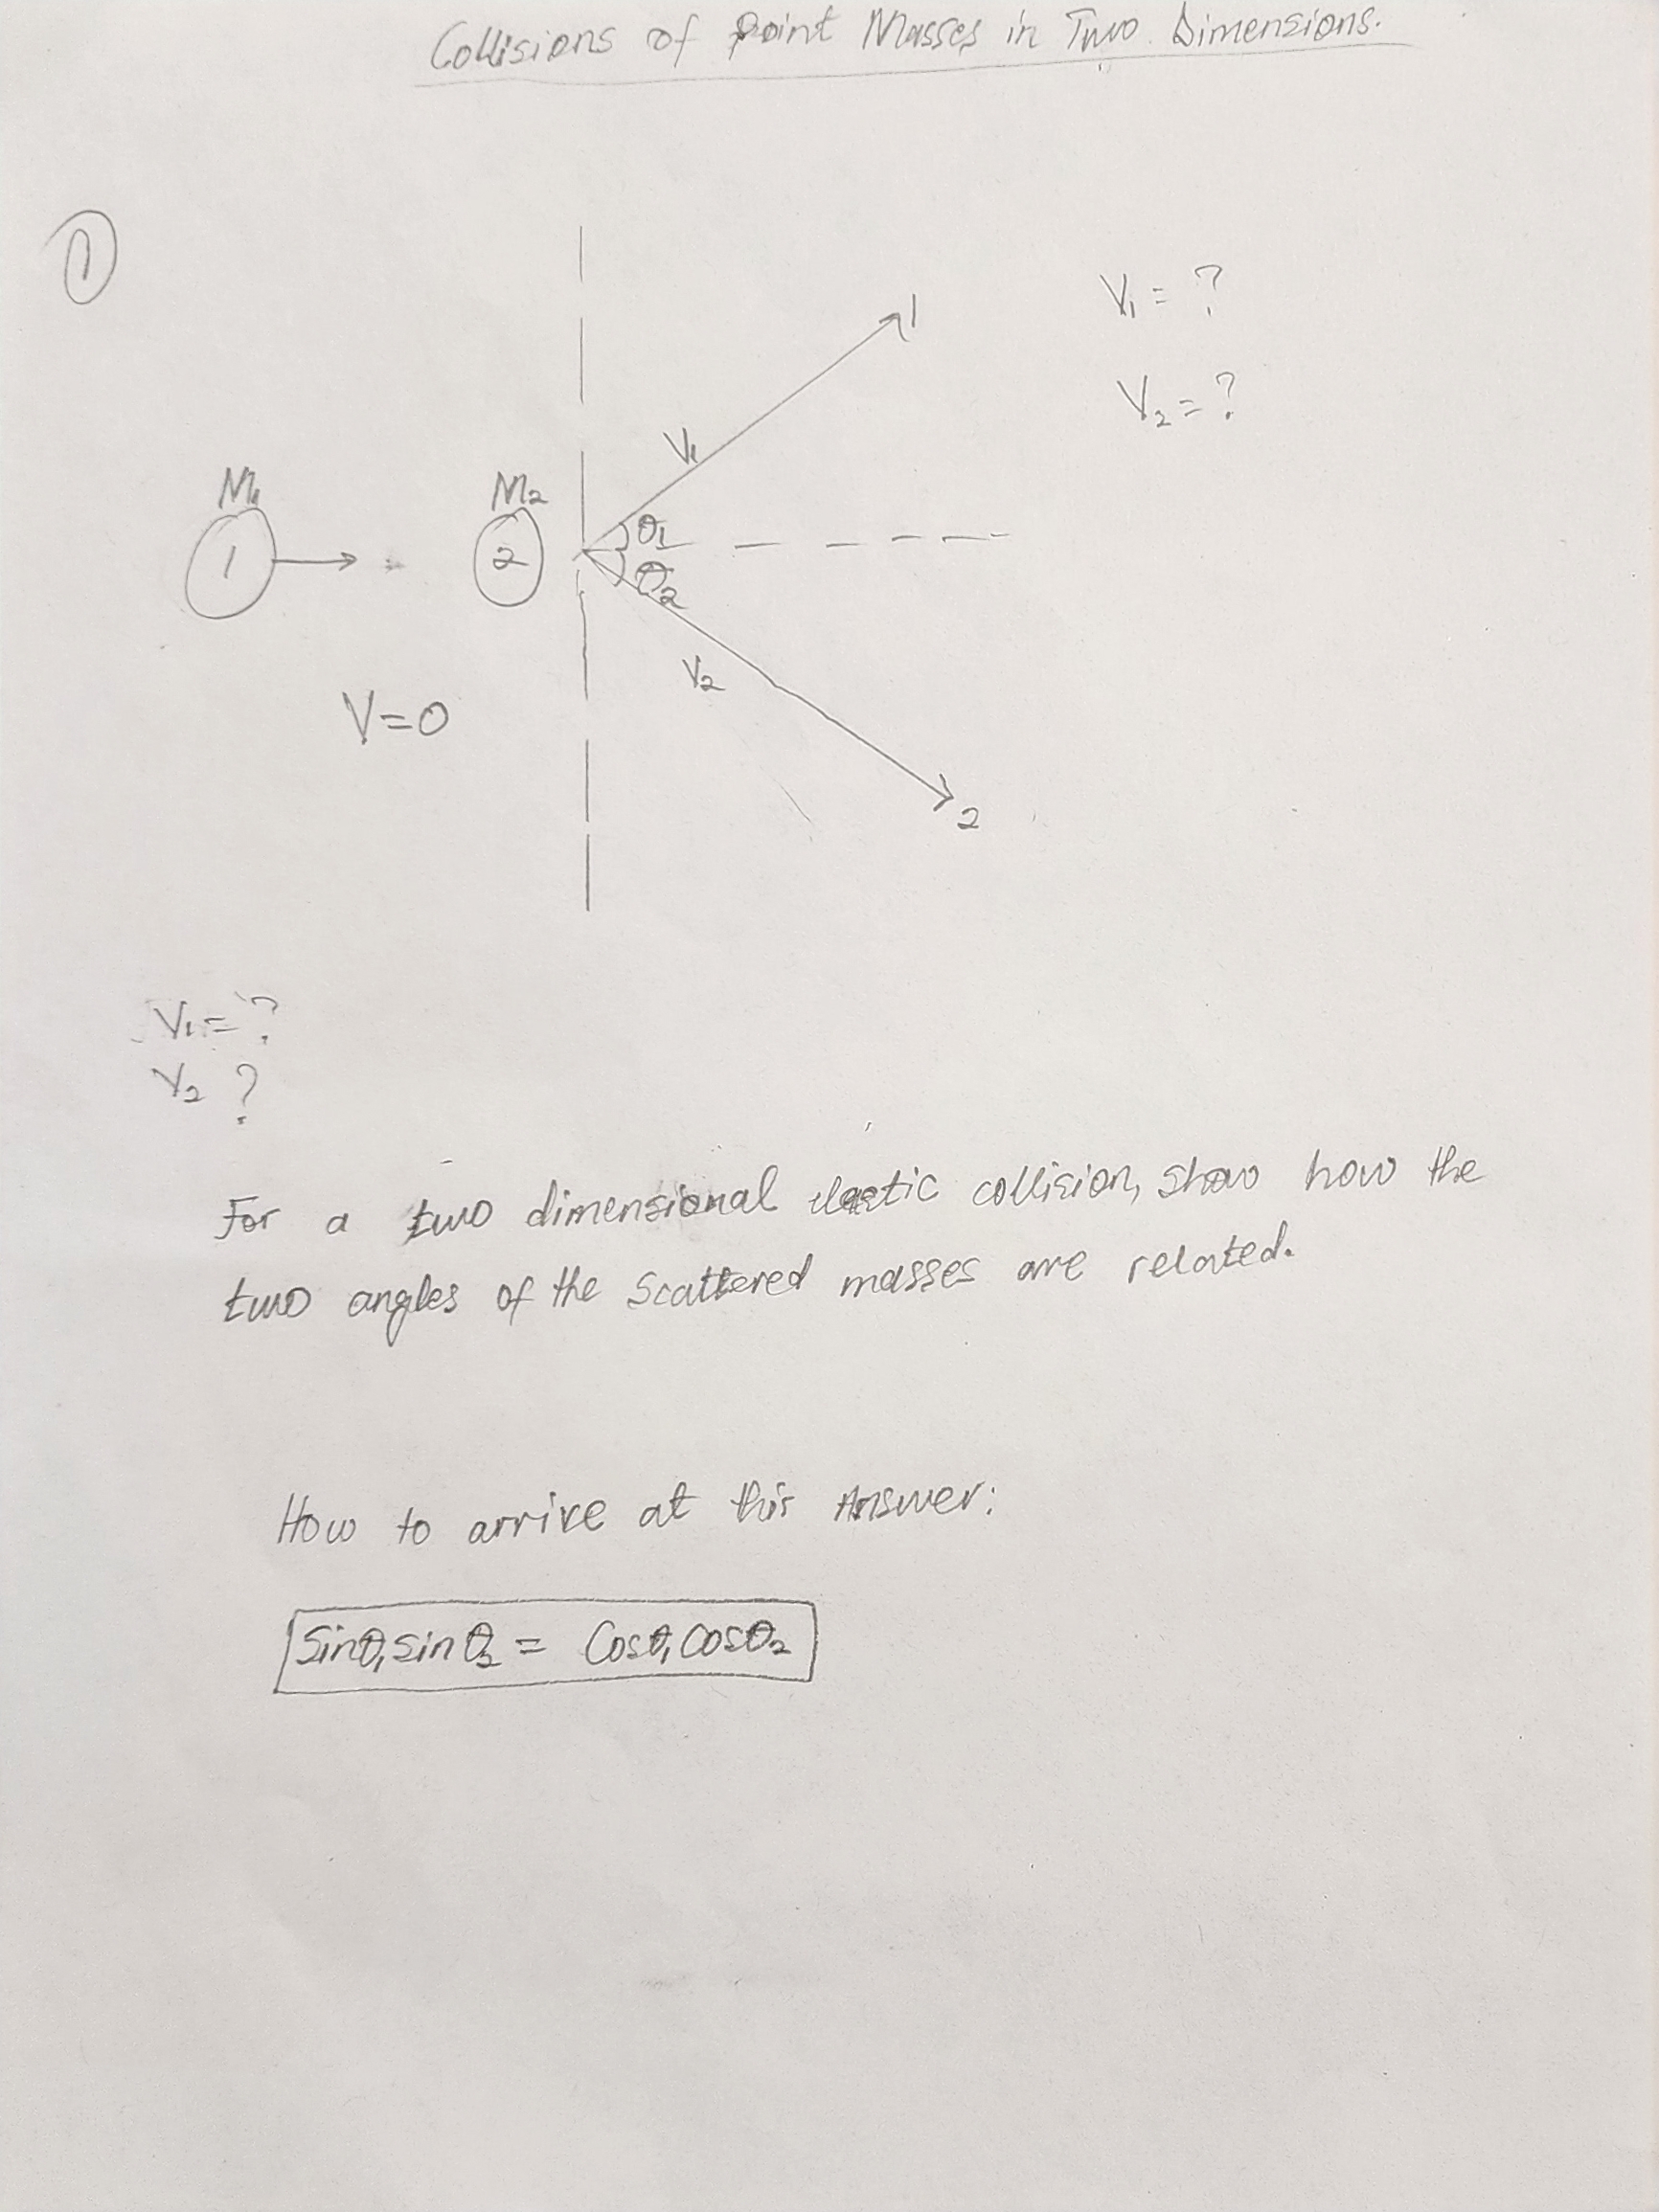 Collisions of Point Masses in Two Dimensions.
①
1
V₁ = ?
V₂ = ?
V₁
M₁
M₂
1
2
θ₁
θ₂
V₂
V=0
2
V₁ = ?
V₂ ?
For a two dimensional elastic collision, show how the
two angles of the scattered masses are related.
How to arrive at this Answer:
Sinθ₁ sinθ₂ = Cosθ₁ Cosθ₂